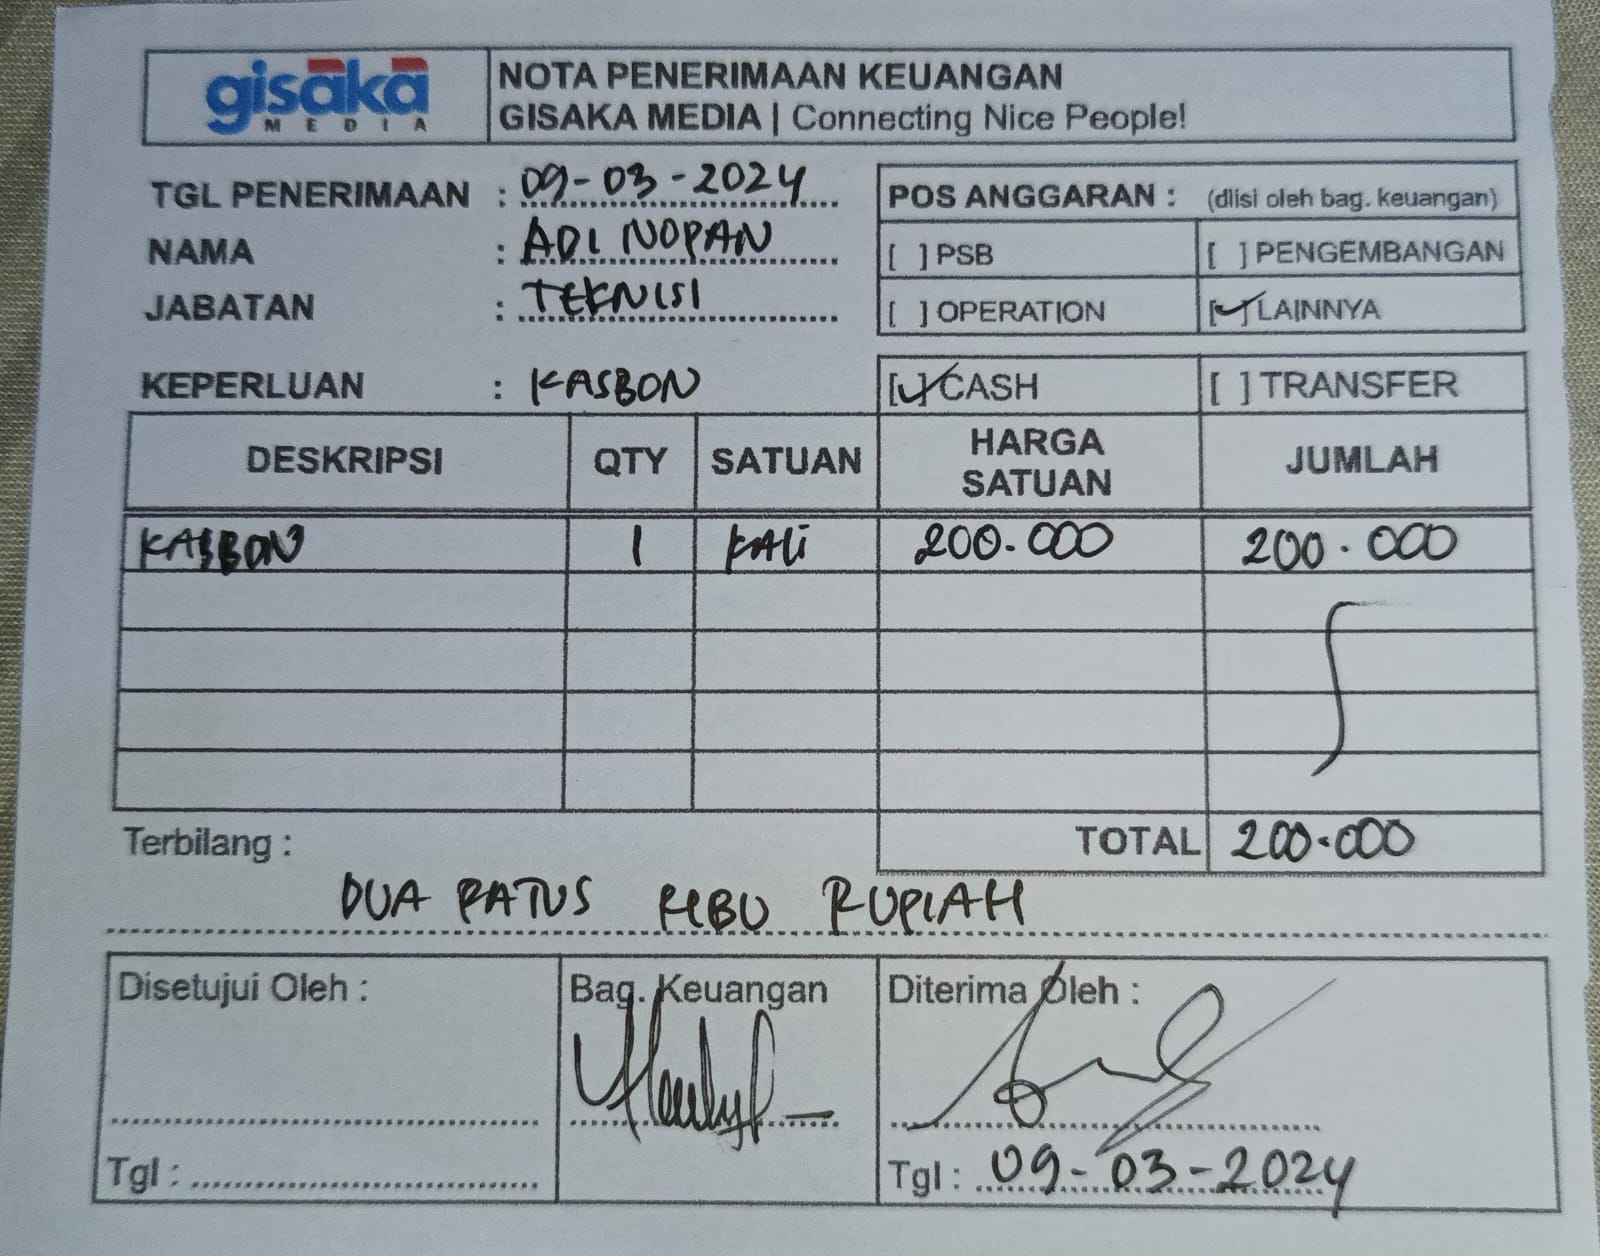 gisaka
MEDIA
NOTA PENERIMAAN KEUANGAN
GISAKA MEDIA | Connecting Nice People!
TGL PENERIMAAN : 09-03-2024
NAMA : ADI NOPAN
JABATAN : TEKNISI
POS ANGGARAN : (diisi oleh bag. keuangan)
[ ] PSB [ ] PENGEMBANGAN
[ ] OPERATION [✓] LAINNYA
KEPERLUAN : KASBON
[✓] CASH [ ] TRANSFER
DESKRIPSI QTY SATUAN HARGA SATUAN JUMLAH
KASBON 1 KALI 200.000 200.000
TOTAL 200.000
Terbilang :
DUA RATUS RIBU RUPIAH
Disetujui Oleh : Bag. Keuangan Diterima Oleh :
Tgl : Tgl : 09-03-2024